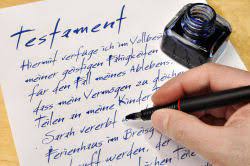 Testament
Hiermit verfüge ich im Vollbesi
meiner geistigen Fähigkeiten
für den Fall meines Ablebens,
dass mein Vermögen zu gleichen
Teilen an meine Kinder
Sarah vererbt
Ferienhaus im Breisg
werden, der